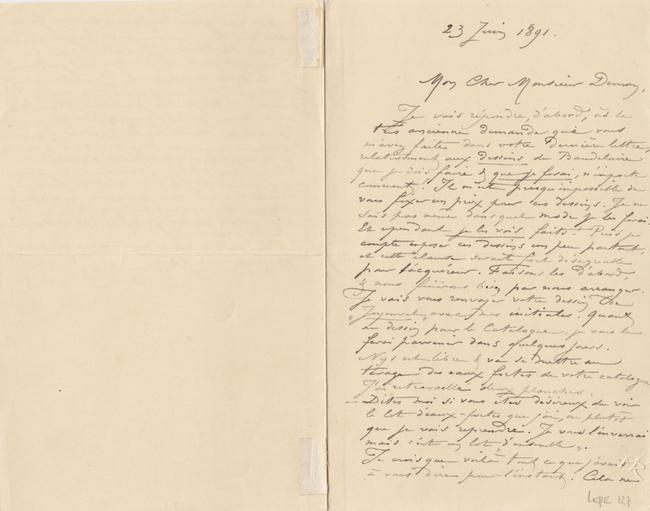 23 Juin 1891.
Mon Cher Monsieur Deman,
Je vais répondre, d'abord, à la
très ancienne demande que vous
m'avez faites dans votre Dernière lettre,
relativement aux dessins de Baudelaire
que je dois faire & que je ferai, n'importe
comment. Il m'est presqu'impossible de
vous fixer un prix pour ces dessins. Je ne
sais pas même dans quel mode je les ferai.
Et cependant je les vois faits! Puis je
compte exposer ces dessins un peu partout,
et cette clause serait fort désagréable
pour l'acquéreur. Faisons les D'abord,
& nous finirons bien par nous arranger.
Je vais vous renvoyer votre dessin The
avec mes initiales. Quant
au dessin pour le Catalogue, je vous le
ferai parvenir dans quelques jours.
Nys est libre & va se mettre au
tirage des eaux fortes de votre catalogue
J'ai retravaillé deux planches.
– Dites moi si vous êtes désireux de voir
le lot d'eaux-fortes que j'ai, ou plutôt
que je vais reprendre. Je vous l'enverrai
mais c'est un lot "d'ensemble".
Je crois que voilà tout ce que j'avais
à vous dire pour l'instant. Cela ne
LEPR 127